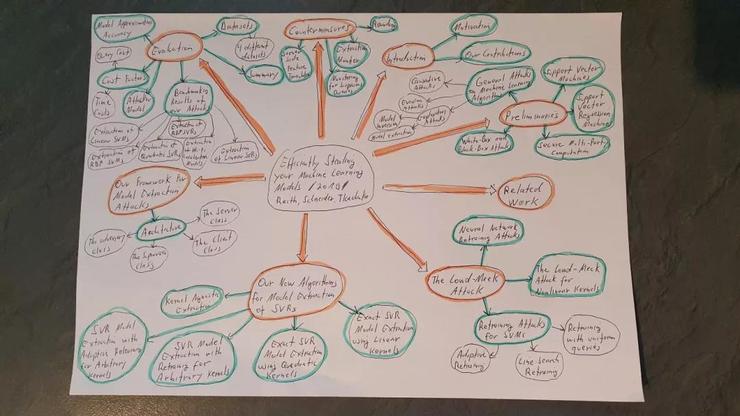 Efficiently Stealing
your Machine Learning
Models / 2019 /
Reith, Schneider, Tkachenko
Model Approximation
Accuracy
Evaluation
Datasets
4 different
datasets
Summary
Query Cost
Cost Factors
Time
Costs
Attacker
Model
Benchmarking
Results of
our Attack
Extraction of
Linear SVMs
Extraction of
RBF SVMs
Extraction of
Quadratic SVRs
Extraction of
RBF SVRs
Extraction of
Wi-Fi
Localization
Models
Extraction of
Linear SVRs
Countermeasures
Rounding
Extraction
Monitor
Monitoring
for Suspicious
Queries
Server
Side
Feature
Translation
Introduction
Motivation
Our Contributions
Preliminaries
General Attacks
on Machine Learning
Algorithms
Causative
Attacks
Evasion
Attacks
Exploratory
Attacks
Model
Inversion
Model extraction
White-Box and
Black-Box Attack
Support Vector
Machines
Support
Vector
Regression
Machines
Secure Multi-Party
Computation
Related
Work
The Loud-Meek
Attack
Neural Network
Retraining Attacks
The Loud-Meek
Attack for
Nonlinear Kernels
Retraining Attacks
for SVMs
Retraining
with uniform
queries
Line Search
Retraining
Adaptive
Retraining
Our New Algorithms
for Model Extraction
of SVRs
Kernel Agnostic
Extraction
SVR Model
Extraction with
Adaptive Retraining
for Arbitrary
Kernels
SVR Model
Extraction with
Retraining for
Arbitrary Kernels
Exact SVR
Model Extraction
using Quadratic
Kernels
Exact SVR
Model Extraction
using Linear
Kernels
Our Framework for
Model Extraction
Attacks
Architecture
The Server
Class
The Client
Class
The Supervisor
Class
The adversary
class